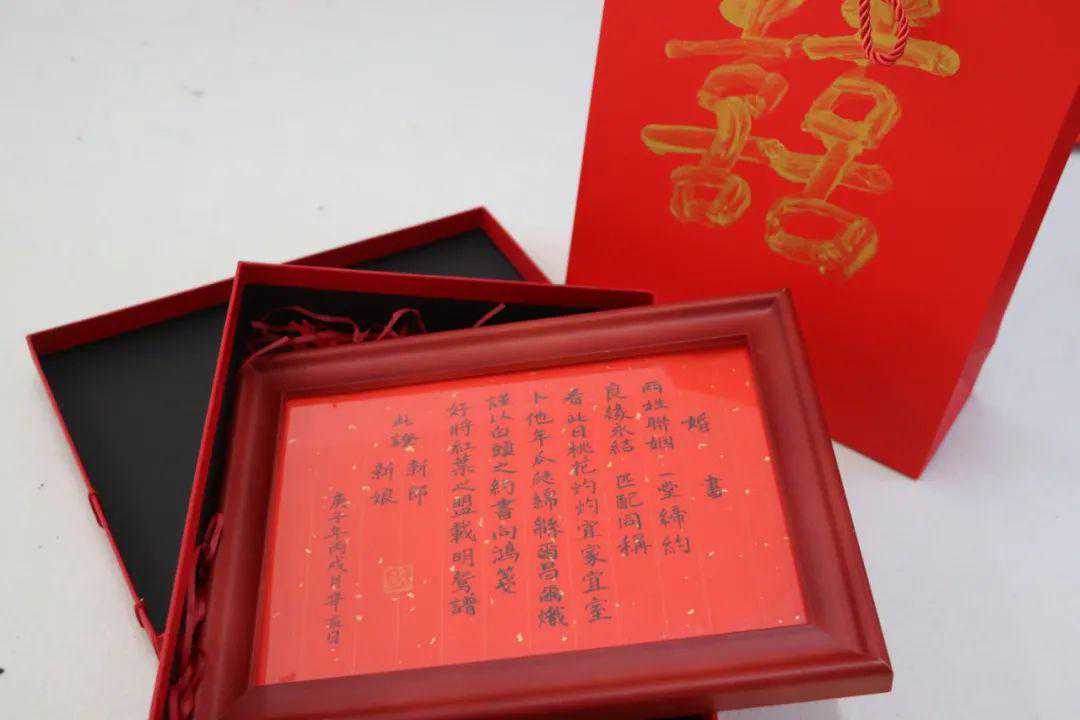 囍
婚書
兩姓聯姻 一堂締約
良緣永結 匹配同稱
看此日桃花灼灼宜家宜室
卜他年瓜瓞綿緜爾昌爾熾
謹以白頭之約書向鴻箋
好將紅葉之盟載明鴛譜
此證
新郎
新娘
庚子年丙戌月辛亥日